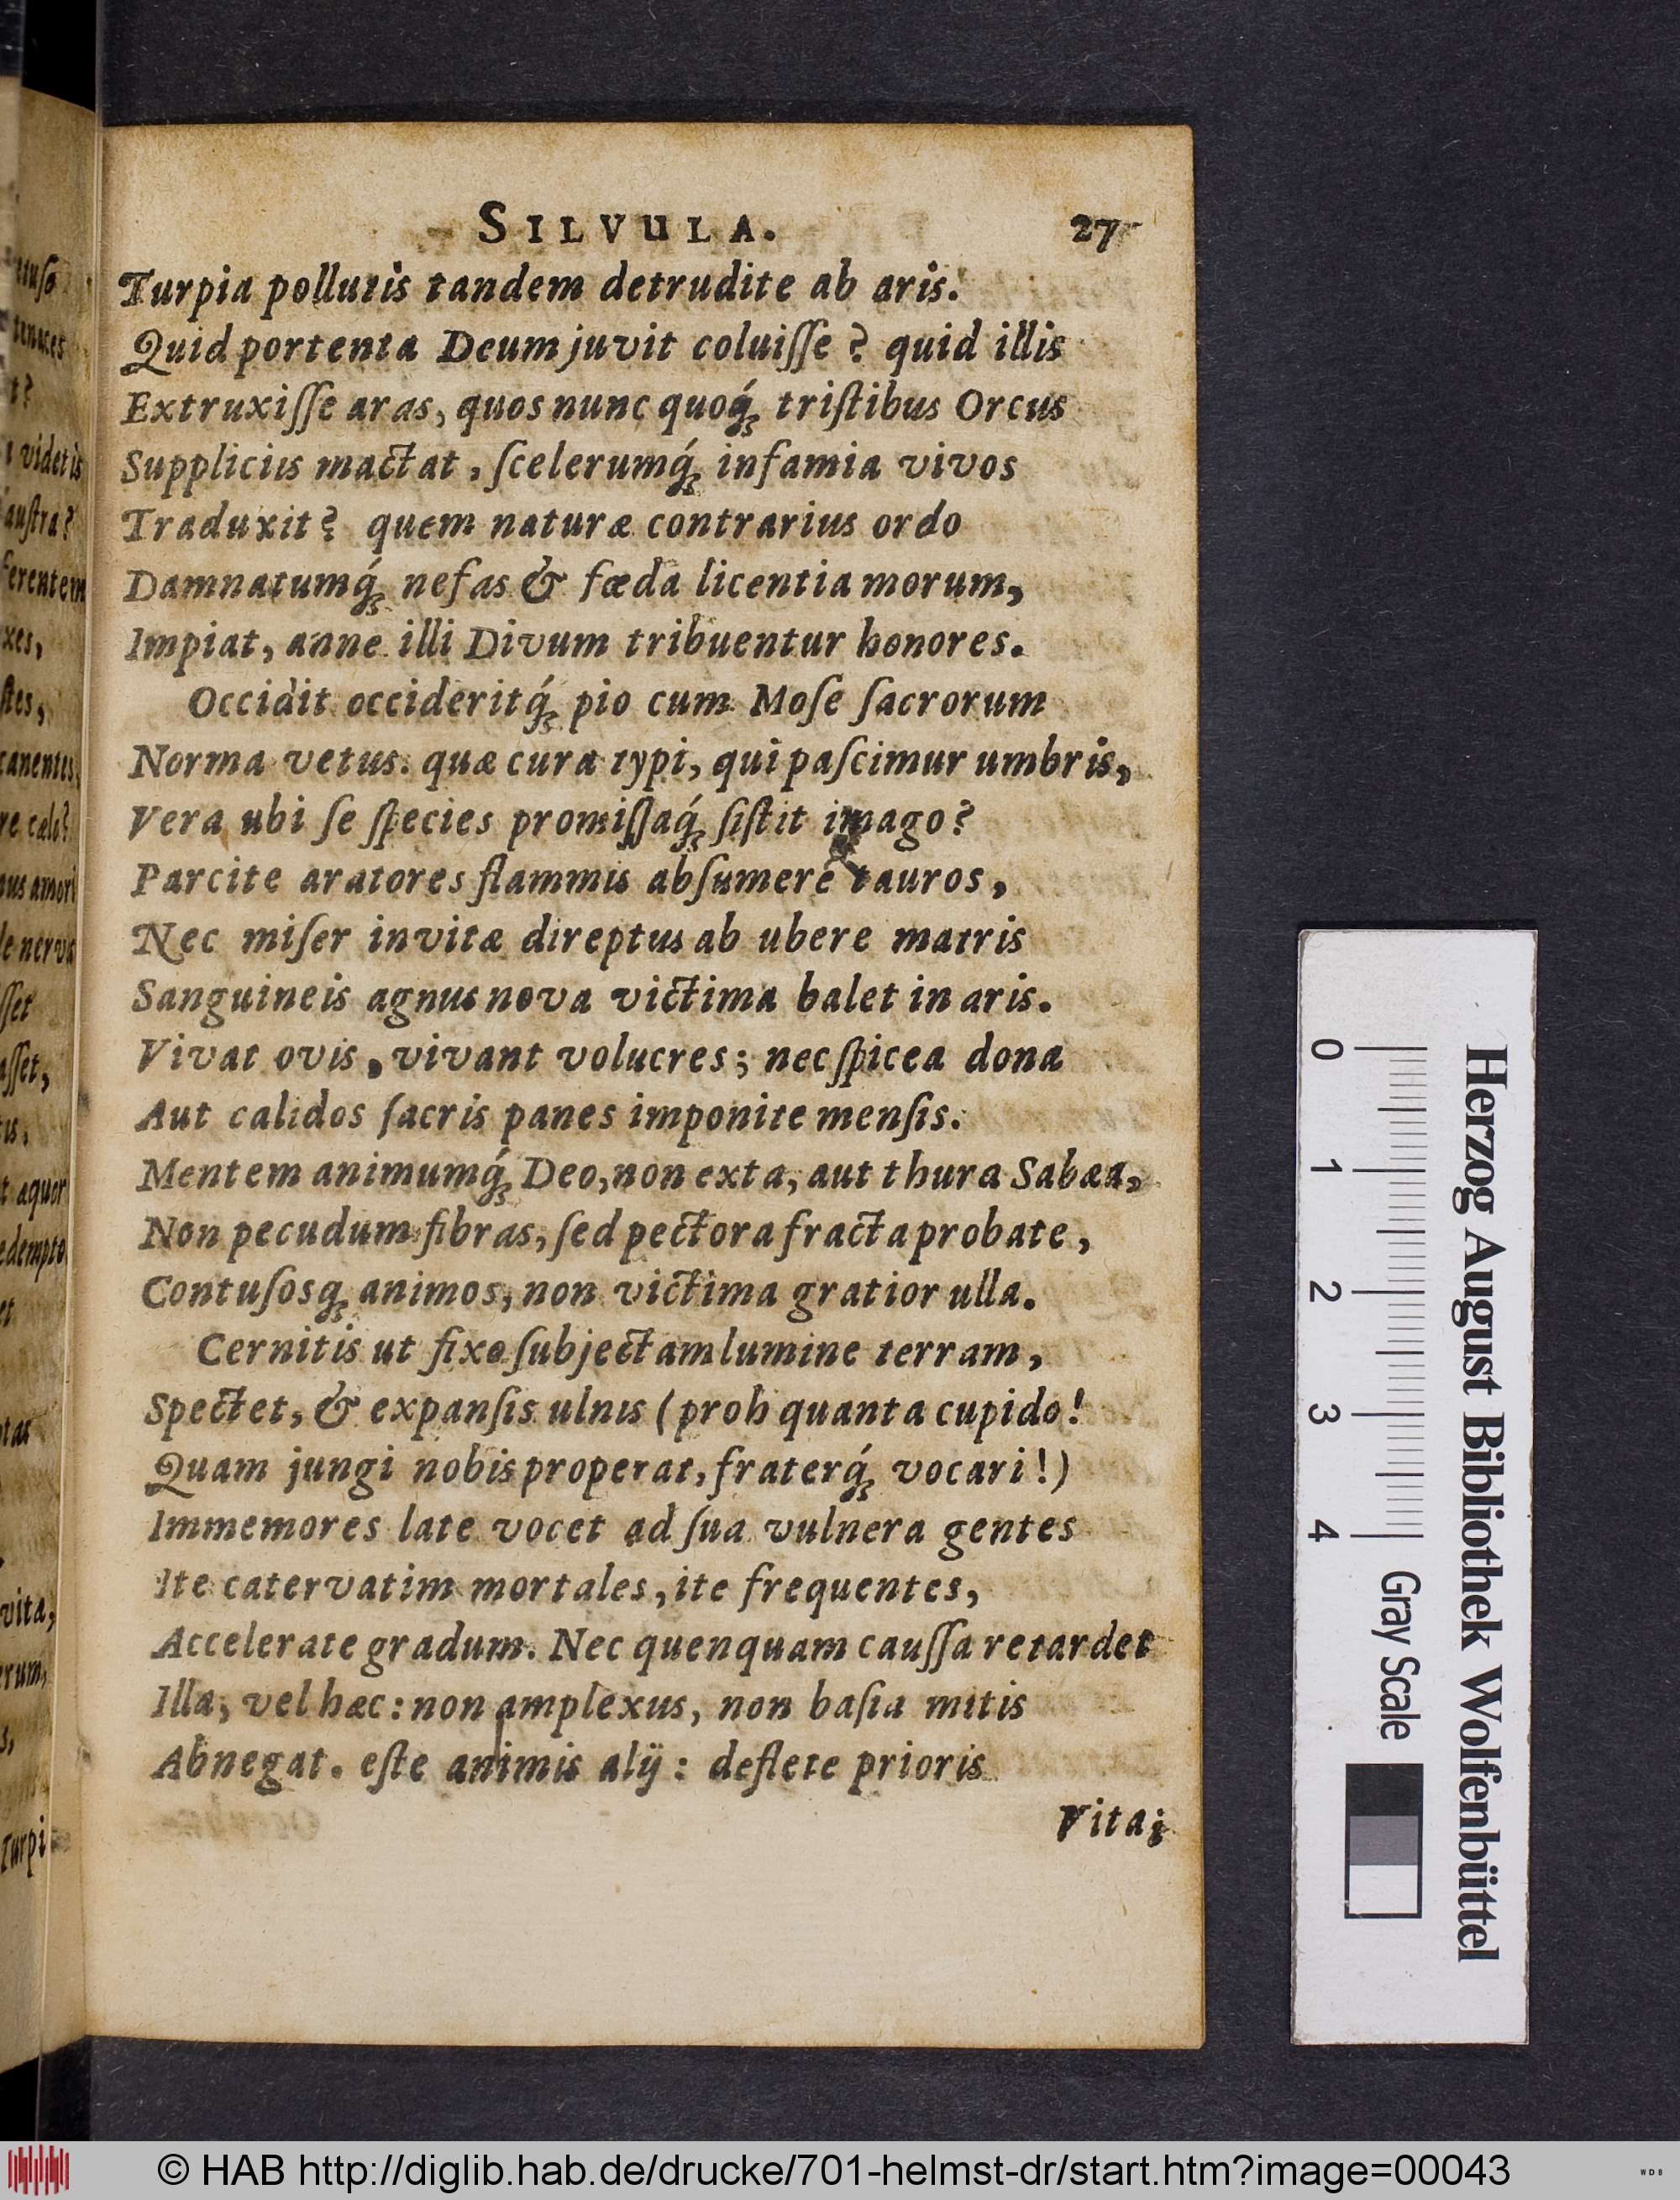 SILVULA. 27
Turpia pollutis tandem detrudite ab aris.
Quid portenta Deum juvit coluiſſe? quid illis
Extruxiſſe aras, quos nunc quoq́; triſtibus Orcus
Suppliciis mactat, ſcelerumq́; infamia vivos
Traduxit? quem naturæ contrarius ordo
Damnatumq́; nefas & fœda licentia morum,
Impiat, anne illi Divum tribuentur honores.
Occidit occideritq́; pio cum Moſe ſacrorum
Norma vetus. quæ cura typi, qui paſcimur umbris,
Vera ubi ſe ſpecies promiſſaq́; ſiſtit imago?
Parcite aratores flammis abſumere tauros,
Nec miſer invitæ direptus ab ubere matris
Sanguineis agnus nova victima balet in aris.
Vivat ovis, vivant volucres; nec ſpicea dona
Aut calidos ſacris panes imponite menſis.
Mentem animumq́; Deo, non exta, aut thura Sabæa,
Non pecudum fibras, ſed pectora fracta probate,
Contuſosq; animos, non victima gratior ulla.
Cernitis ut fixo ſubjectam lumine terram,
Spectet, & expanſis ulnis (proh quanta cupido!
Quam jungi nobis properat, fraterq́; vocari!)
Immemores late vocet ad ſua vulnera gentes
Ite catervatim mortales, ite frequentes,
Accelerate gradum. Nec quenquam cauſſa retardet
Illa, vel hæc: non amplexus, non baſia mitis
Abnegat. eſte animis alij: deflete prioris
Vitai
videtis
auſtra?
ferentem
xes,
ſtes,
canentes
aus amori
ſſet
aſſet,
edempto
vita,
Turpi
Herzog August Bibliothek Wolfenbüttel
0 1 2 3 4
Gray Scale
© HAB http://diglib.hab.de/drucke/701-helmst-dr/start.htm?image=00043
WDB